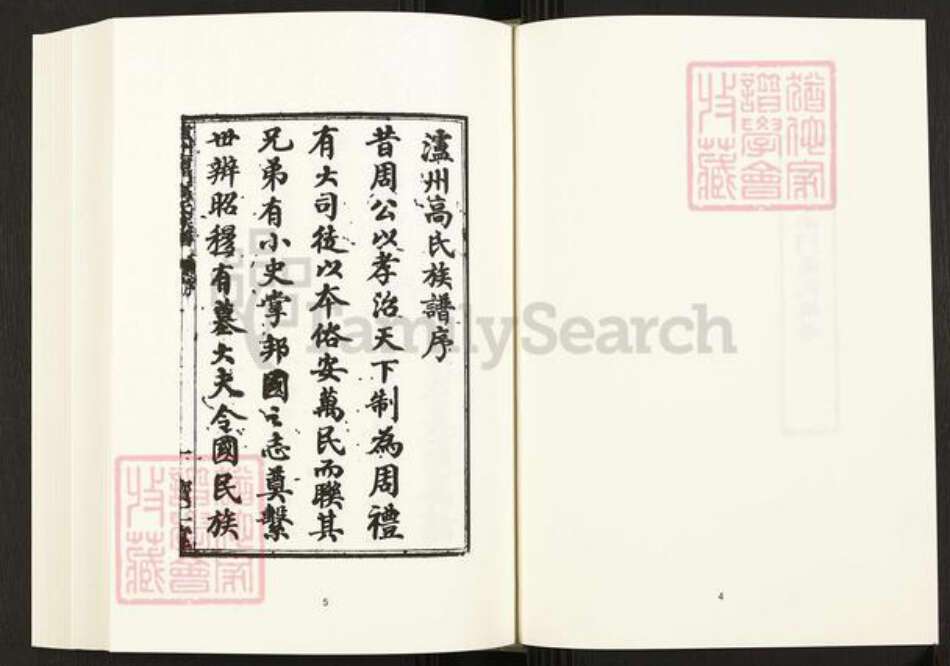 瀘州高氏族譜序
昔周公以孝治天下制為周禮
有大司徒以本俗安萬民而聯其
兄弟有小史掌邦國之志奠繫
世辨昭穆有墓大夫令國民族
5
4
猶他家
譜學會
收藏
猶他家
譜學會
收藏
FamilySearch